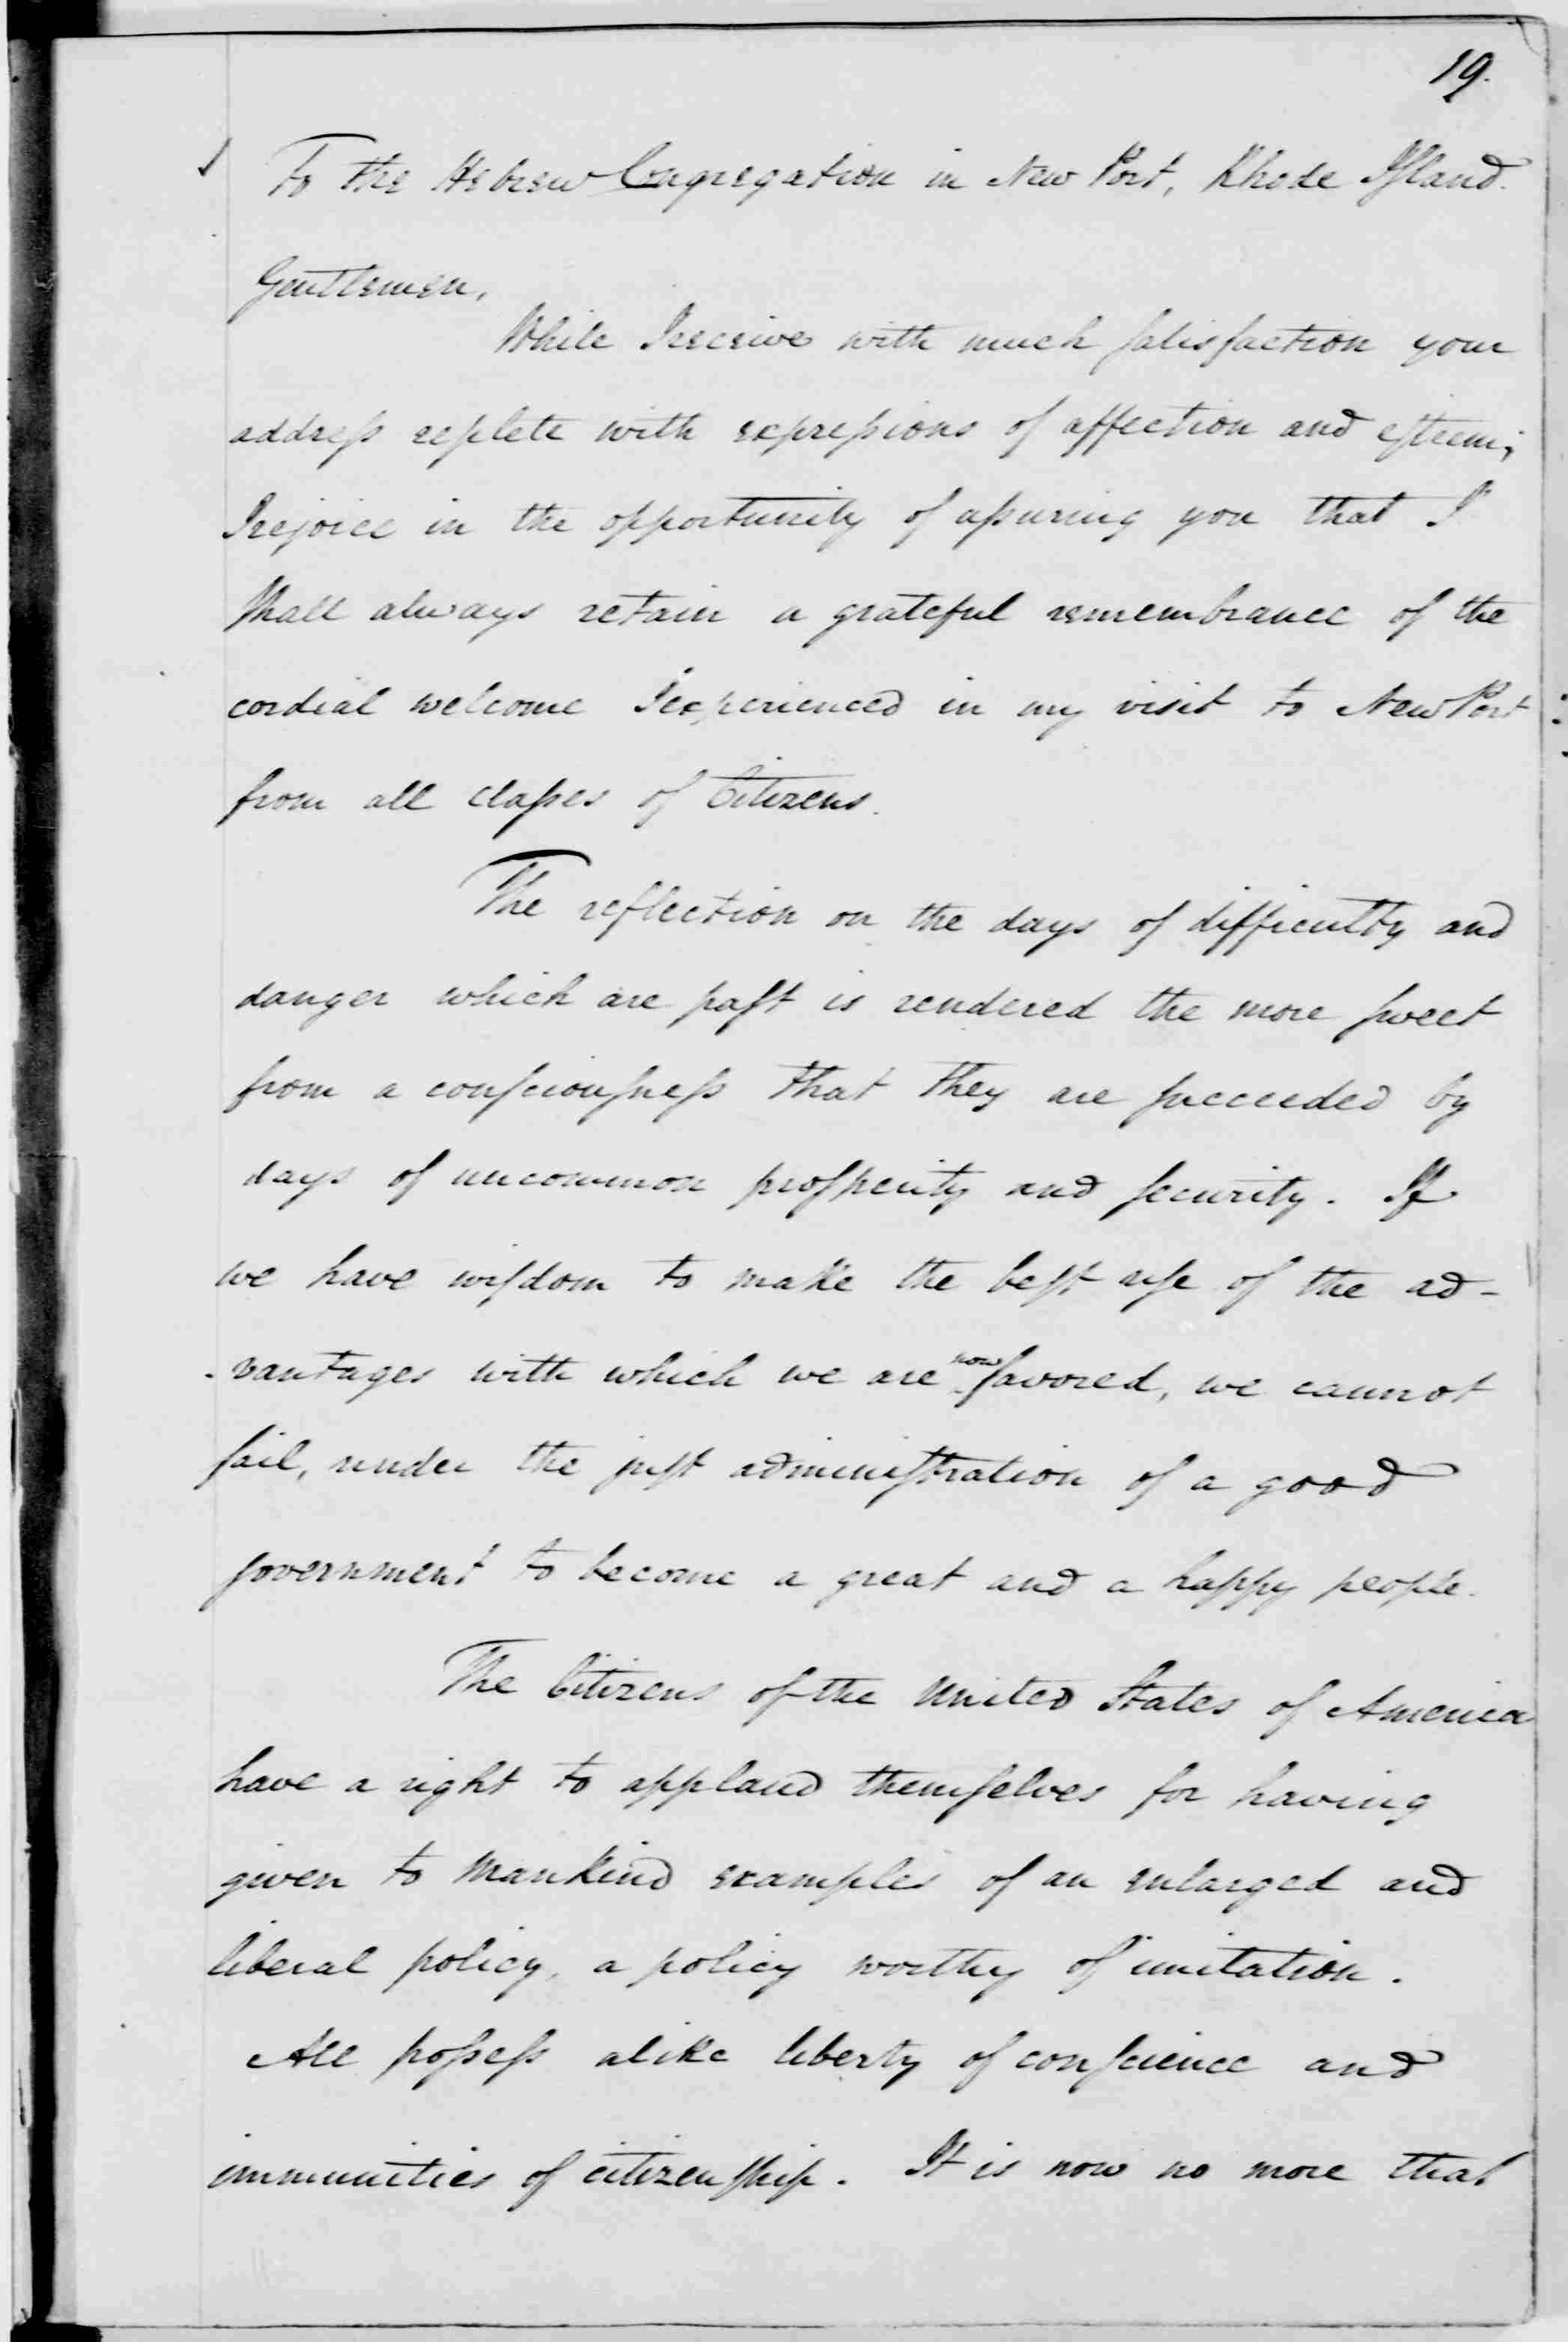 19.
To the Hebrew Congregation in New Port, Rhode Island.
Gentlemen,
While I receive with much satisfaction your
address replete with expressions of affection and esteem;
I rejoice in the opportunity of assuring you that I
shall always retain a grateful remembrance of the
cordial welcome I experienced in my visit to New Port
from all classes of Citizens.
The reflection on the days of difficulty and
danger which are past is rendered the more sweet
from a consciousness that they are succeeded by
days of uncommon prosperity and security. If
we have wisdom to make the best use of the ad-
-vantages with which we are now favored, we cannot
fail, under the just administration of a good
government to become a great and a happy people.
The Citizens of the United States of America
have a right to applaud themselves for having
given to Mankind examples of an enlarged and
liberal policy, a policy worthy of imitation.
All possess alike liberty of conscience and
immunities of citizenship. It is now no more that